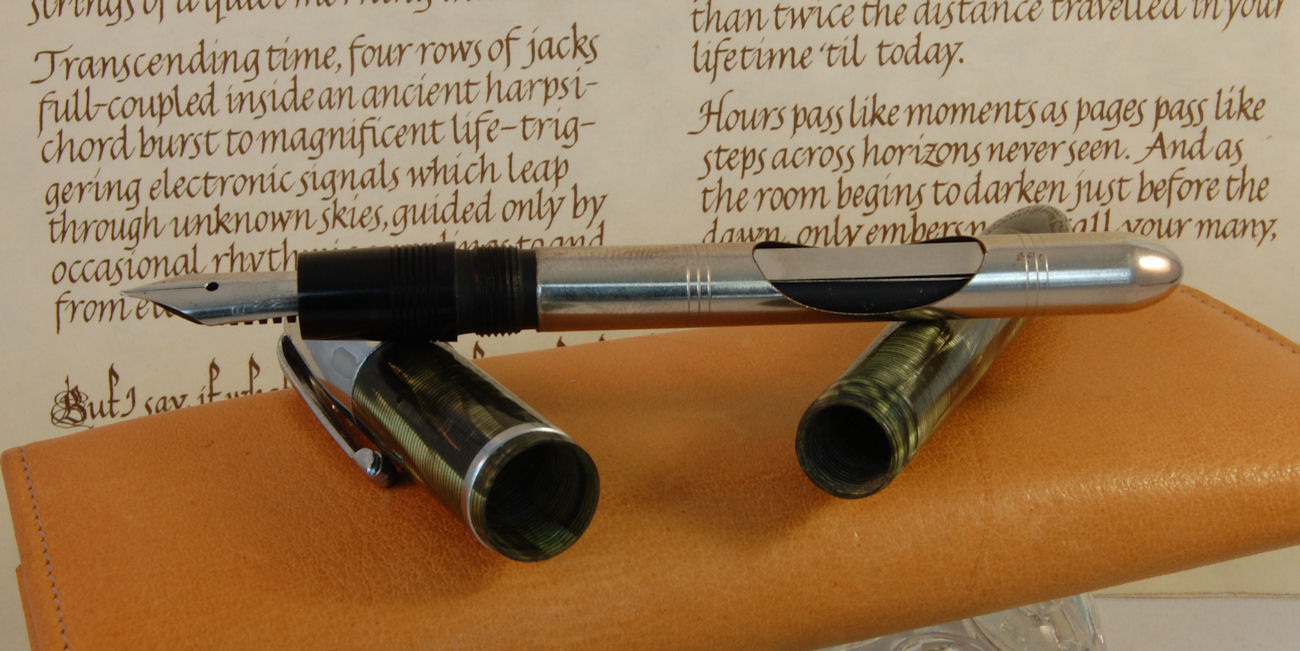 strings of a quiet morning
Transcending time, four rows of jacks
full-coupled inside an ancient harpsi-
chord burst to magnificent life-trig-
gering electronic signals which leap
through unknown skies, guided only by
occasional to and
from
But I say, if
than twice the distance travelled in your
lifetime 'til today.
Hours pass like moments as pages pass like
steps across horizons never seen. And as
the room begins to darken just before the
dawn, only embers all your many,